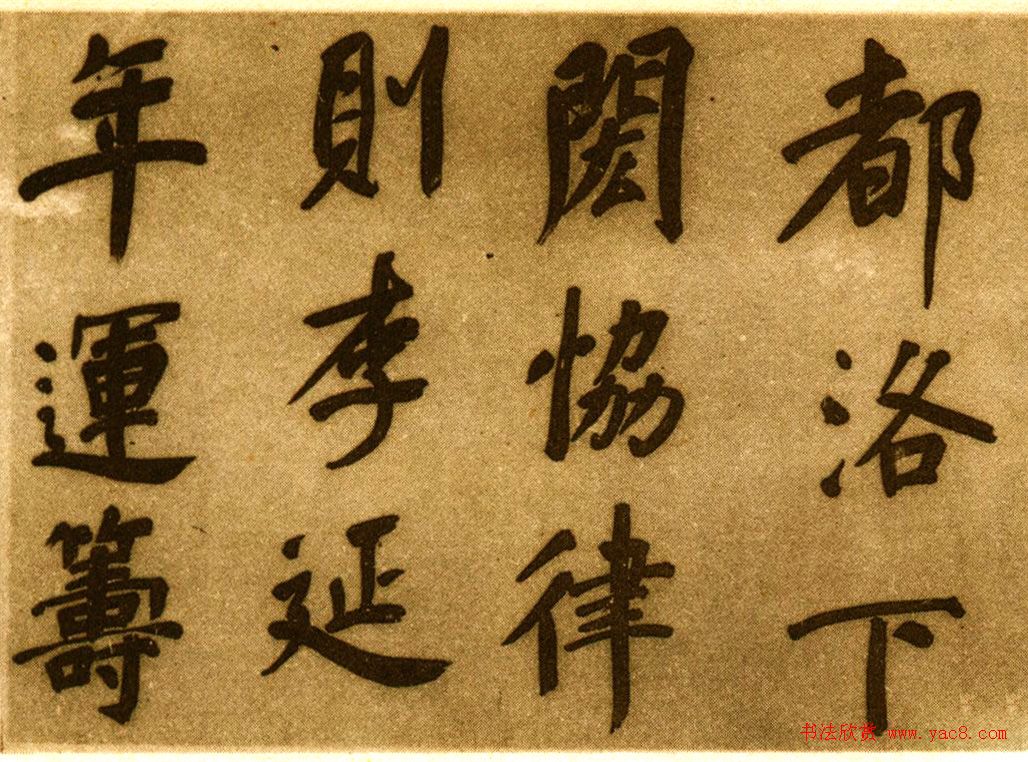 都洛下
閎恊律
則李延
年運籌
书法欣赏 www.yac8.com